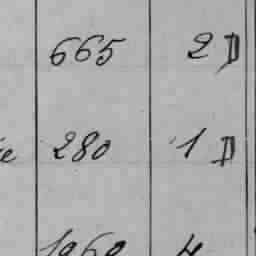 665 2 D
280 1 D
1060 4